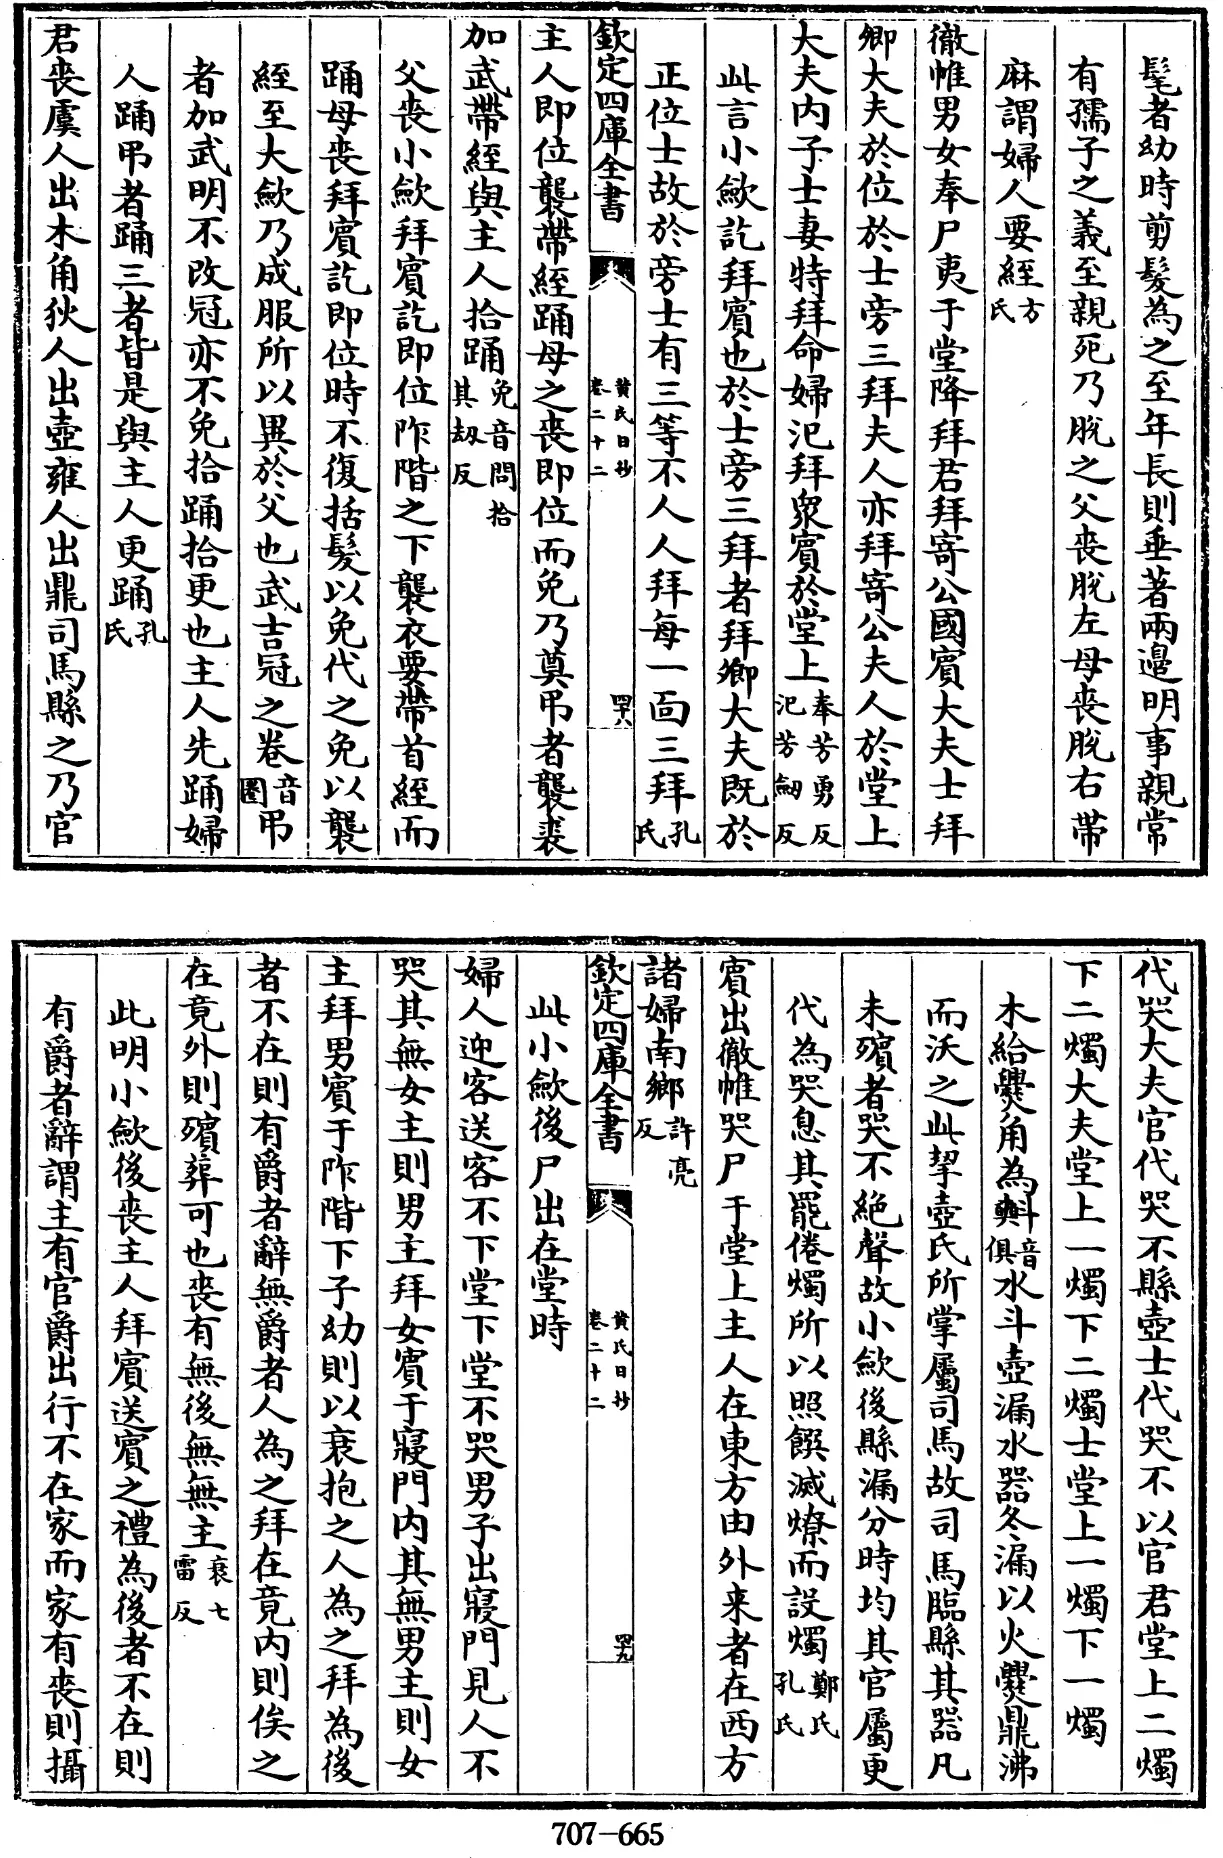 髦者幼時剪髮為之至年長則垂著兩邉明事親常
有孺子之義至親死乃脫之父喪脫左母喪脫右帶
麻謂婦人要絰方氏
徹帷男女奉尸夷于堂降拜君拜寄公國賔大夫士拜
卿大夫於位於士旁三拜夫人亦拜寄公夫人於堂上
大夫内子士妻特拜命婦氾拜衆賔於堂上奉芳勇反氾芳劒反
此言小歛訖拜賔也於士旁三拜者拜卿大夫既於
正位士故於旁士有三等不人人拜每一面三拜孔氏
欽定四庫全書
黄氏日抄
卷二十二
四十八
主人即位襲帶絰踊母之喪即位而免乃奠弔者襲裘
加武帶絰與主人拾踊免音問拾其刼反
父喪小歛拜賔訖即位阼階之下襲衣要帶首絰而
踊母喪拜賔訖即位時不復括髮以免代之免以襲
絰至大歛乃成服所以異於父也武吉冠之卷音圈弔
者加武明不改冠亦不免拾踊拾更也主人先踊婦
人踊弔者踊三者皆是與主人更踊孔氏
君喪虞人出木角狄人出壺雍人出鼎司馬縣之乃官
代哭大夫官代哭不縣壺士代哭不以官君堂上二燭
下二燭大夫堂上一燭下二燭士堂上一燭下一燭
木給爨角為㪺音俱水斗壺漏水器冬漏以火爨鼎沸
而沃之此挈壺氏所掌屬司馬故司馬臨縣其器凡
未殯者哭不絶聲故小歛後縣漏分時均其官屬更
代為哭息其罷倦燭所以照饌滅燎而設燭鄭氏孔氏
賔出徹帷哭尸于堂上主人在東方由外来者在西方
諸婦南鄉許亮反
欽定四庫全書
黄氏日抄
卷二十二
四十九
此小歛後尸出在堂時
婦人迎客送客不下堂下堂不哭男子出寢門見人不
哭其無女主則男主拜女賔于寢門内其無男主則女
主拜男賔于阼階下子幼則以衰抱之人為之拜為後
者不在則有爵者辭無爵者人為之拜在竟内則俟之
在竟外則殯葬可也喪有無後無無主衰七雷反
此明小歛後喪主人拜賔送賔之禮為後者不在則
有爵者辭謂主有官爵出行不在家而家有喪則攝
707-665